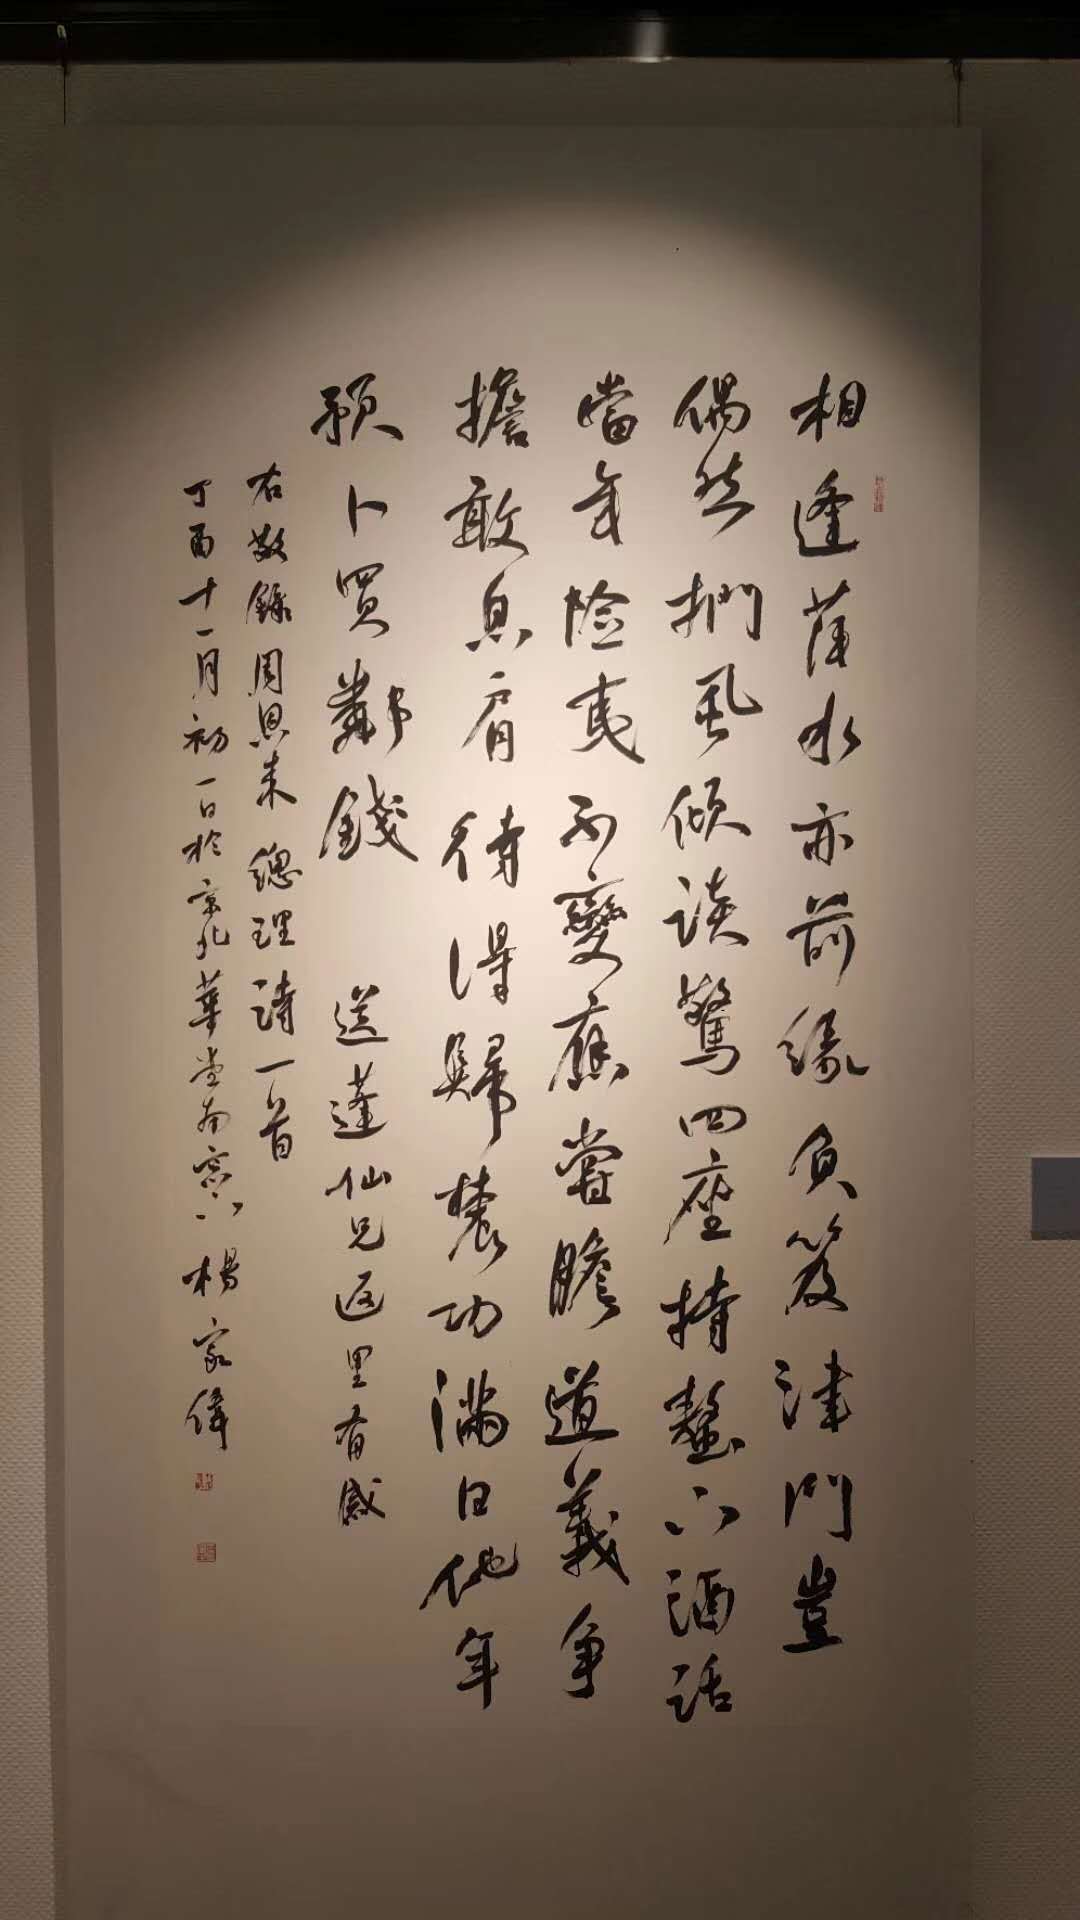 相逢萍水亦前緣負笈津門豈
偶然捫風傾談驚四座持螯下酒話
當年險夷不變應嘗膽道義爭
擔敢息肩待得歸農功滿日他年
預卜買鄰錢 送蓬仙兄返里有感
右敬錄周恩来總理詩一首
丁酉十一月初一日於京北華堂南窓下楊家偉